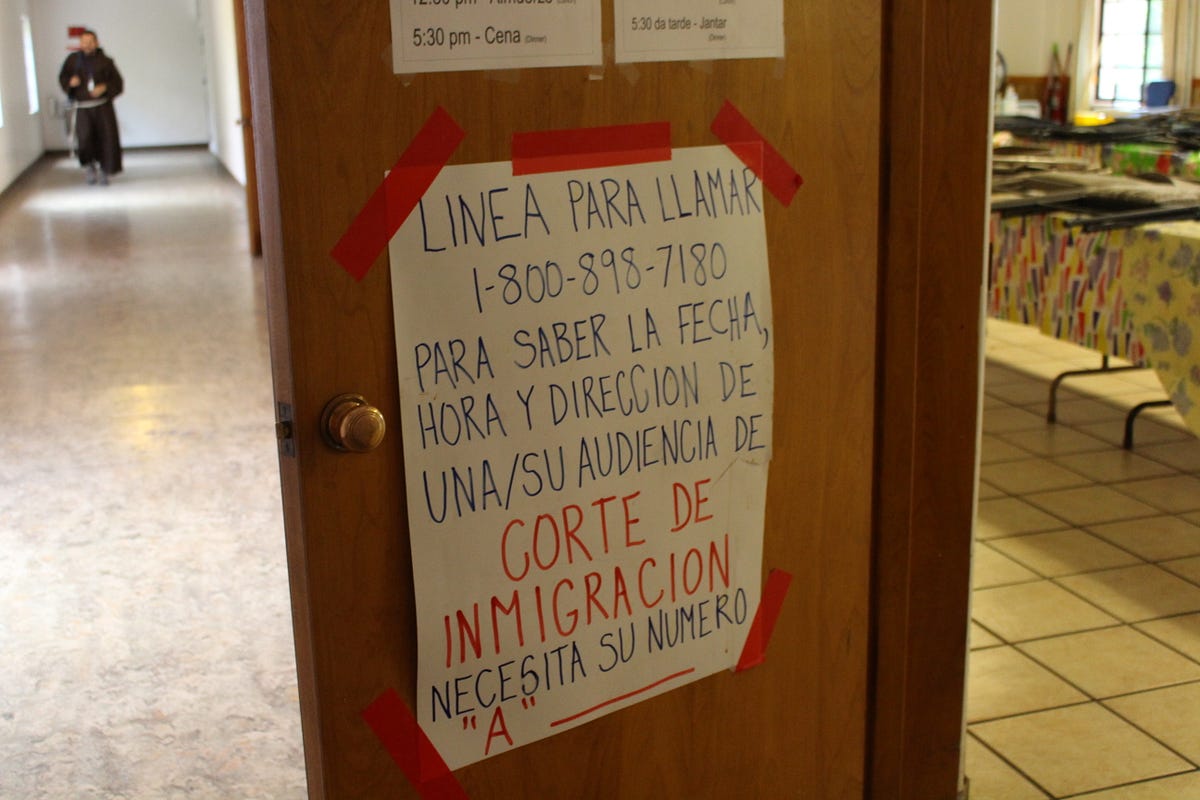 12:30 pm - Almuerzo (Lunch)
5:30 pm - Cena (Dinner)
5:30 da tarde - Jantar
(Dinner)
LINEA PARA LLAMAR
1-800-898-7180
PARA SABER LA FECHA,
HORA Y DIRECCION DE
UNA/SU AUDIENCIA DE
CORTE DE
INMIGRACION
NECESITA SU NUMERO
"A" __